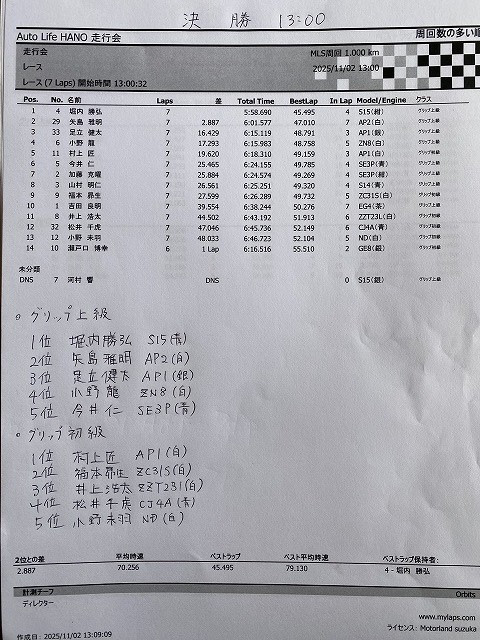 決勝 13:00
Auto Life HANO 走行会 周回数の多い順
走行会 MLS周回 1.000 km
レース 2025/11/02 13:00
レース (7 Laps) 開始時間 13:00:32
Pos. No. 名前 Laps 差 Total Time BestLap In Lap Model/Engine クラス
1 4 堀内 勝弘 7 5:58.690 45.495 7 S15(紺) グリップ上級
2 29 矢島 雅明 7 2.887 6:01.577 47.010 7 AP2(白) グリップ上級
3 33 足立 健太 7 16.429 6:15.119 48.791 3 AP1(銀) グリップ上級
4 6 小野 龍 7 17.293 6:15.983 48.758 5 ZN8(白) グリップ上級
5 11 村上 匠 7 19.620 6:18.310 49.159 3 AP1(白) グリップ初級
6 5 今井 仁 7 25.465 6:24.155 49.785 4 SE3P(青) グリップ上級
7 2 加藤 克曜 7 25.884 6:24.574 49.269 4 SE3P(紺) グリップ上級
8 3 山村 明仁 7 26.561 6:25.251 49.320 4 S14(青) グリップ上級
9 9 福本 昴生 7 27.599 6:26.289 49.732 5 ZC31S(白) グリップ初級
10 1 吉田 良明 7 39.554 6:38.244 50.276 7 EG4(茶) グリップ上級
11 8 井上 浩太 7 44.502 6:43.192 51.913 6 ZZT231(白) グリップ初級
12 32 松井 千虎 7 47.046 6:45.736 52.149 6 CJ4A(青) グリップ初級
13 12 小野 未羽 7 48.033 6:46.723 52.104 5 ND(白) グリップ初級
14 10 瀬戸口 博幸 6 1 Lap 6:16.516 55.510 2 GE8(銀) グリップ初級
未分類
DNS 7 河村 響 DNS 0 S15(銀) グリップ上級
○グリップ上級
1位 堀内勝弘 S15(青)
2位 矢島雅明 AP2(白)
3位 足立健太 AP1(銀)
4位 小野龍 ZN8(白)
5位 今井仁 SE3P(青)
○グリップ初級
1位 村上匠 AP1(白)
2位 福本昴生 ZC31S(白)
3位 井上浩太 ZZT231(白)
4位 松井千虎 CJ4A(青)
5位 小野未羽 ND(白)
2位との差 平均時速 ベストラップ ベスト平均時速 ベストラップ保持者:
2.887 70.256 45.495 79.130 4 - 堀内 勝弘
計測チーフ Orbits
ディレクター
www.mylaps.com
ライセンス: Motorland suzuka
作成日: 2025/11/02 13:09:09